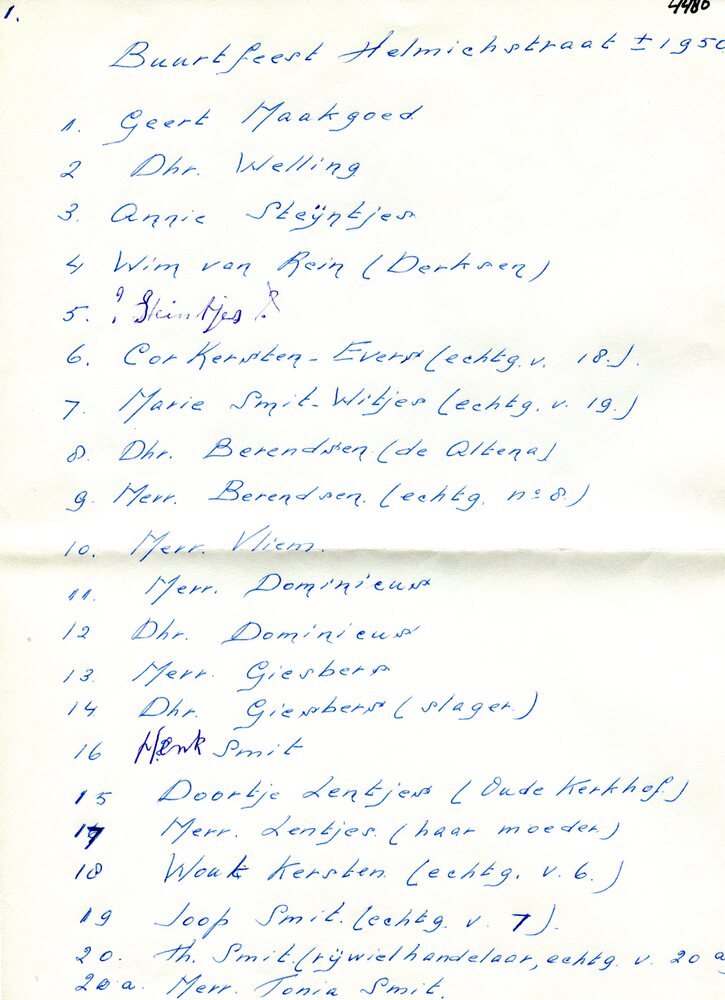 1.
4486
Buurtfeest Helmichstraat ± 1950
1. Geert Maakgoed
2 Dhr. Welling
3. Annie Steÿntjes
4 Wim van Rein (Derksen)
5. ? Steintjes ?
6. Cor Kersten-Evers (echtg. v. 18.).
7. Marie Smit-Witjes (echtg. v. 19.)
8. Dhr. Berendsen (de Altena)
9. Mevr. Berendsen. (echtg. no 8.)
10. Mevr. Vliem.
11. Mevr. Dominicus
12 Dhr. Dominicus
13. Mevr. Giesbers
14. Dhr. Giesbers (slager.)
16 Henk Smit
15 Doortje Lentjes (Oude Kerkhof.)
17 Mevr. Lentjes. (haar moeder.)
18 Wout Kersten. (echtg. v. 6.)
19 Joop Smit. (echtg. v. 7).
20. Th. Smit. (rijwielhandelaar, echtg. v. 20 a
20.a. Mevr. Tonia Smit.